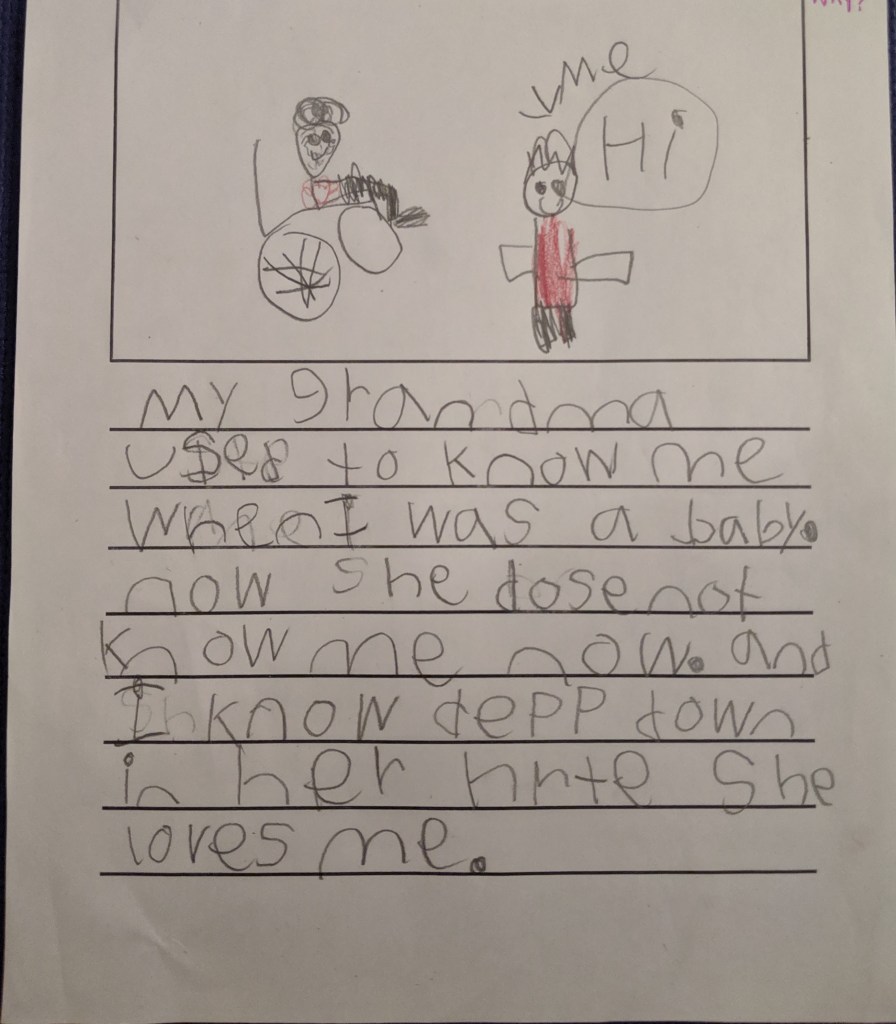 why?
me
Hi
my grandma
used to know me
when I was a baby.
now she dose not
know me now. and
I know depp down
in her hrte She
loves me.